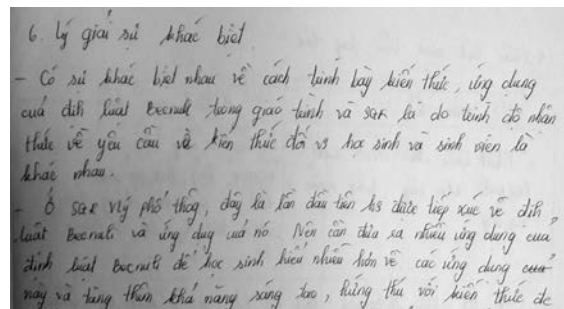 6. Lý giải sự khác biệt
- Có sự khác biệt nhau về cách trình bày kiến thức, ứng dụng
của địh luật Becnuli trong giáo trình và SGK là do trình độ nhận
thức về yêu cầu về kiến thức đối vs học sinh và sinh viên là
khác nhau.
- Ở SGK Vlý phổ thôg, đây là lần đầu tiên hs được tiếp xúc về địh
luật Becnuli và ứng dụg của nó. Nên cần đưa ra nhiều ứng dụng của
định luật Becnuli để học sinh hiểu nhiều hơn về các ứng dụng
này và tăng thêm khả năng sáng tạo, hứng thú với kiến thức